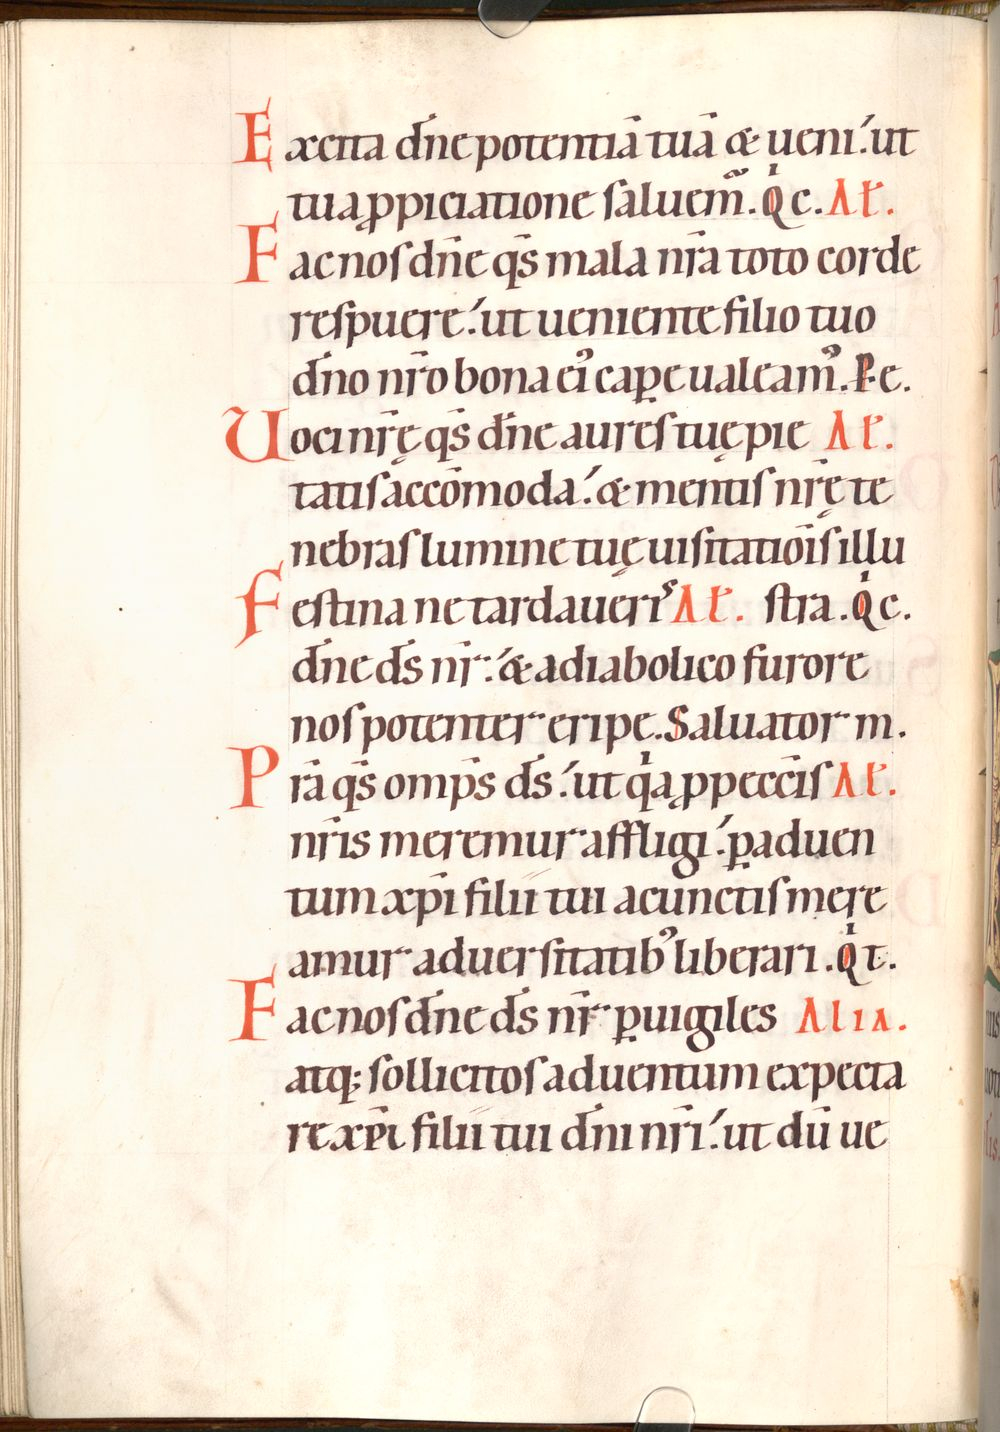 Excita dn̄e potentiā tuā & ueni. ut
tua ꝓpiciatione saluem̃. Qͥ c. Al̄.
Fac nos dn̄e qs̄ mala nr̄a toto corde
respuere. ut ueniente filio tuo
dn̄o nr̄o bona eiꝰ caꝑe ualeamꝰ. P. e.
Uoci nr̄ę qs̄ dn̄e aures tuę pie Al̄.
tatis accōmoda. & mentis nr̄ę te
nebras lumine tuę uisitatiōis illu
Festina ne tardaueris Al̄. stra. Qͥ c.
dn̄e ds̄ nr̄. & a diabolico furore
nos potenter eripe. Saluator m.
Prā qs̄ omp̄s ds̄. ut qͥa ꝓ peccc̄is Al̄.
nr̄is meremur affligi. ꝑ aduen
tum xp̄i filii tui a cunctis mere
amur aduersitatibꝰ liberari. Qͥ t.
Fac nos dn̄e ds̄ nr̄ ꝑuigiles Alia.
atq; sollicitos aduentum expecta
re xp̄i filii tui dn̄i nr̄i. ut dū ue